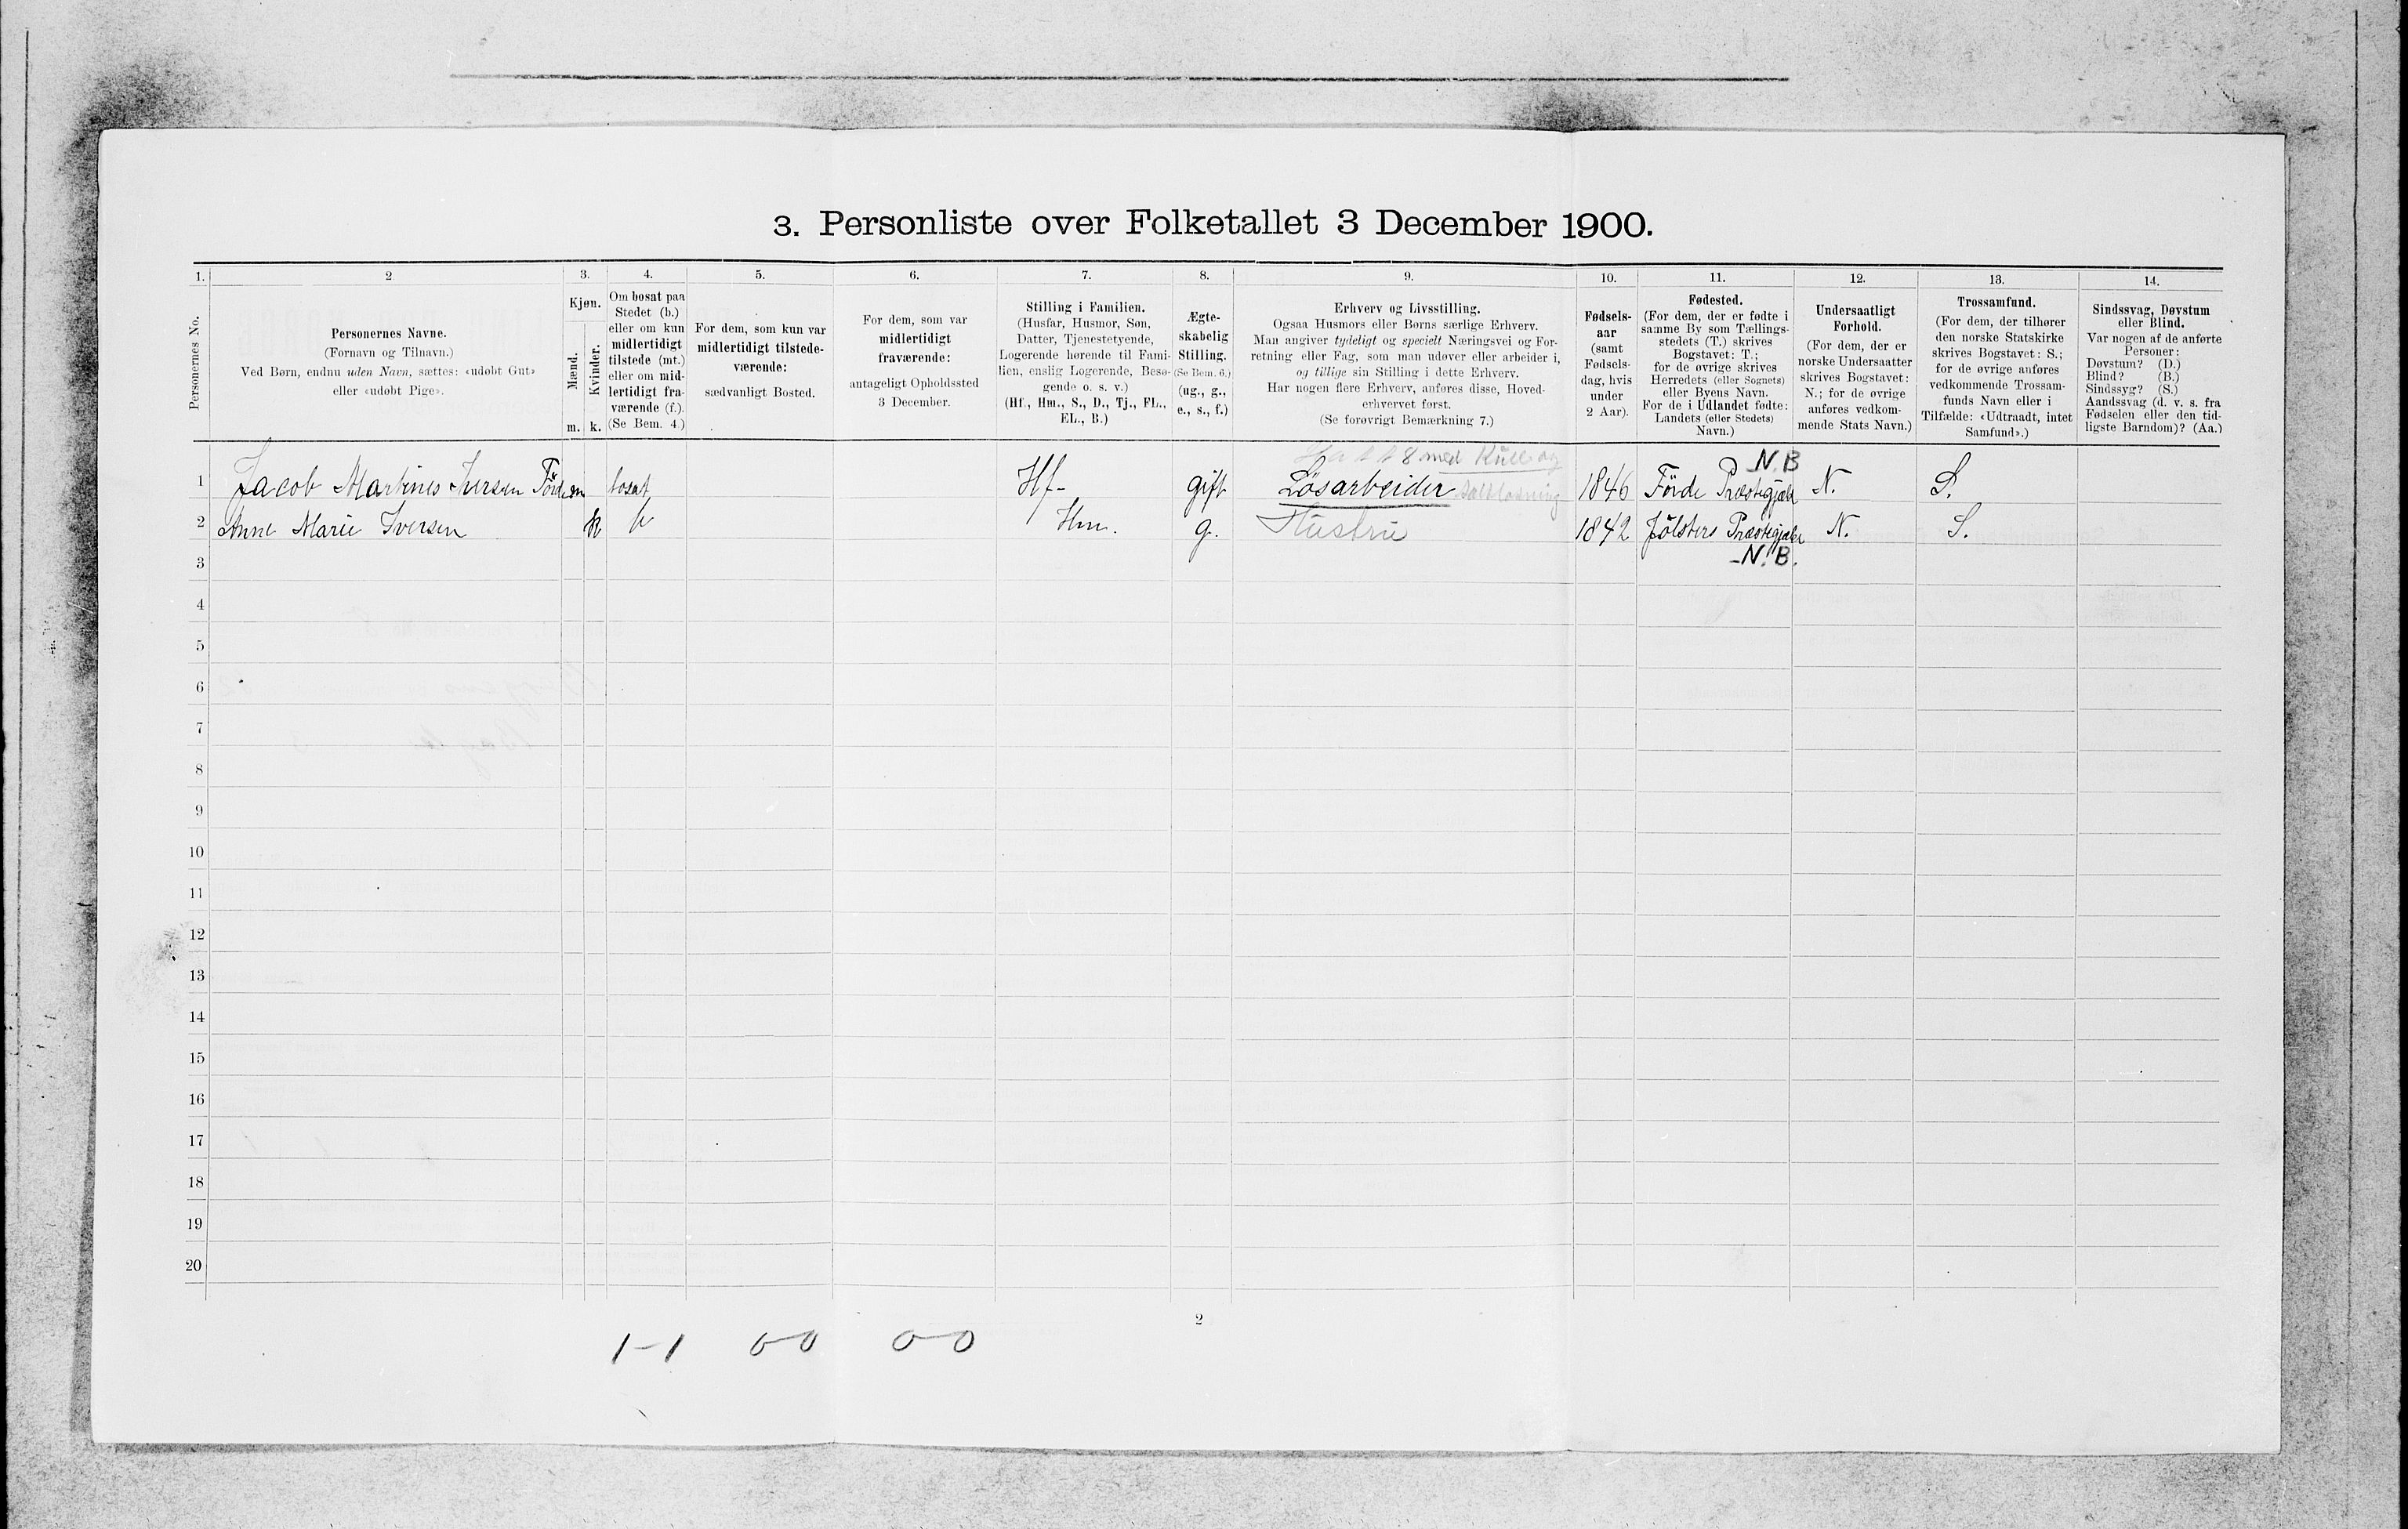 3. Personliste over Folketallet 3 December 1900.
1. 2 3. 4. 5. 6. 7. 8. 9. 10. 11. 12. 13. 14.
Personernes No.
Personernes Navne.
(Fornavn og Tilnavn.)
Ved Børn, endnu uden Navn, sættes: «udøbt Gut»
eller «udøbt Pige».
Kjøn.
Mænd.
Kvinder.
m. k.
Om bosat paa
Stedet (b.)
eller om kun
midlertidigt
tilstede (mt.)
eller om mid-
lertidigt fra-
værende (f.).
(Se Bem. 4.)
For dem, som kun var
midlertidigt tilstede-
værende:
sædvanligt Bosted.
For dem, som var
midlertidigt
fraværende:
antageligt Opholdssted
3 December.
Stilling i Familien.
(Husfar, Husmor, Søn,
Datter, Tjenestetyende,
Logerende hørende til Fami-
lien, enslig Logerende, Besø-
gende o. s. v.)
(Hf., Hm., S., D., Tj., FL.,
EL., B.)
Ægte-
skabelig
Stilling.
(Se Bem. 6.)
(ug., g.,
e., s., f.)
Erhverv og Livsstilling.
Ogsaa Husmors eller Børns særlige Erhverv.
Man angiver tydeligt og specielt Næringsvei og For-
retning eller Fag, som man udøver eller arbeider i,
og tillige sin Stilling i dette Erhverv.
Har nogen flere Erhverv, anføres disse, Hoved-
erhvervet først.
(Se forøvrigt Bemærkning 7.)
Fødsels-
aar
(samt
Fødsels-
dag, hvis
under
2 Aar).
Fødested.
(For dem, der er fødte i
samme By som Tællings-
stedets (T.) skrives
Bogstavet: T.;
for de øvrige skrives
Herredets (eller Sognets)
eller Byens Navn.
For de i Udlandet fødte:
Landets (eller Stedets)
Navn.)
Undersaatligt
Forhold.
(For dem, der er
norske Undersaatter
skrives Bogstavet:
N.; for de øvrige
anføres vedkom-
mende Stats Navn.)
Trossamfund.
(For dem, der tilhører
den norske Statskirke
skrives Bogstavet: S.;
for de øvrige anføres
vedkommende Trossam-
funds Navn eller i
Tilfælde: «Udtraadt, intet
Samfund».)
Sindssvag, Døvstum
eller Blind.
Var nogen af de anførte
Personer:
Døvstum? (D.)
Blind? (B.)
Sindssyg? (S.)
Aandssvag (d. v. s. fra
Fødselen eller den tid-
ligste Barndom)? (Aa.)
med Kull og N.B
1 Jacob Martines Iversen Förde m bosat Hf- gift Lösarbeider Saltlosning 1846 Förde Præstegjæld N. S.
2 Anne Marie Iversen k b Hm. g. Hustru 1842 Jölsters Præstegjæld N. S.
3 N.B.
4
5
6
7
8
9
10
11
12
13
14
15
16
17
18
19
20
2
1-1 0-0 0-0